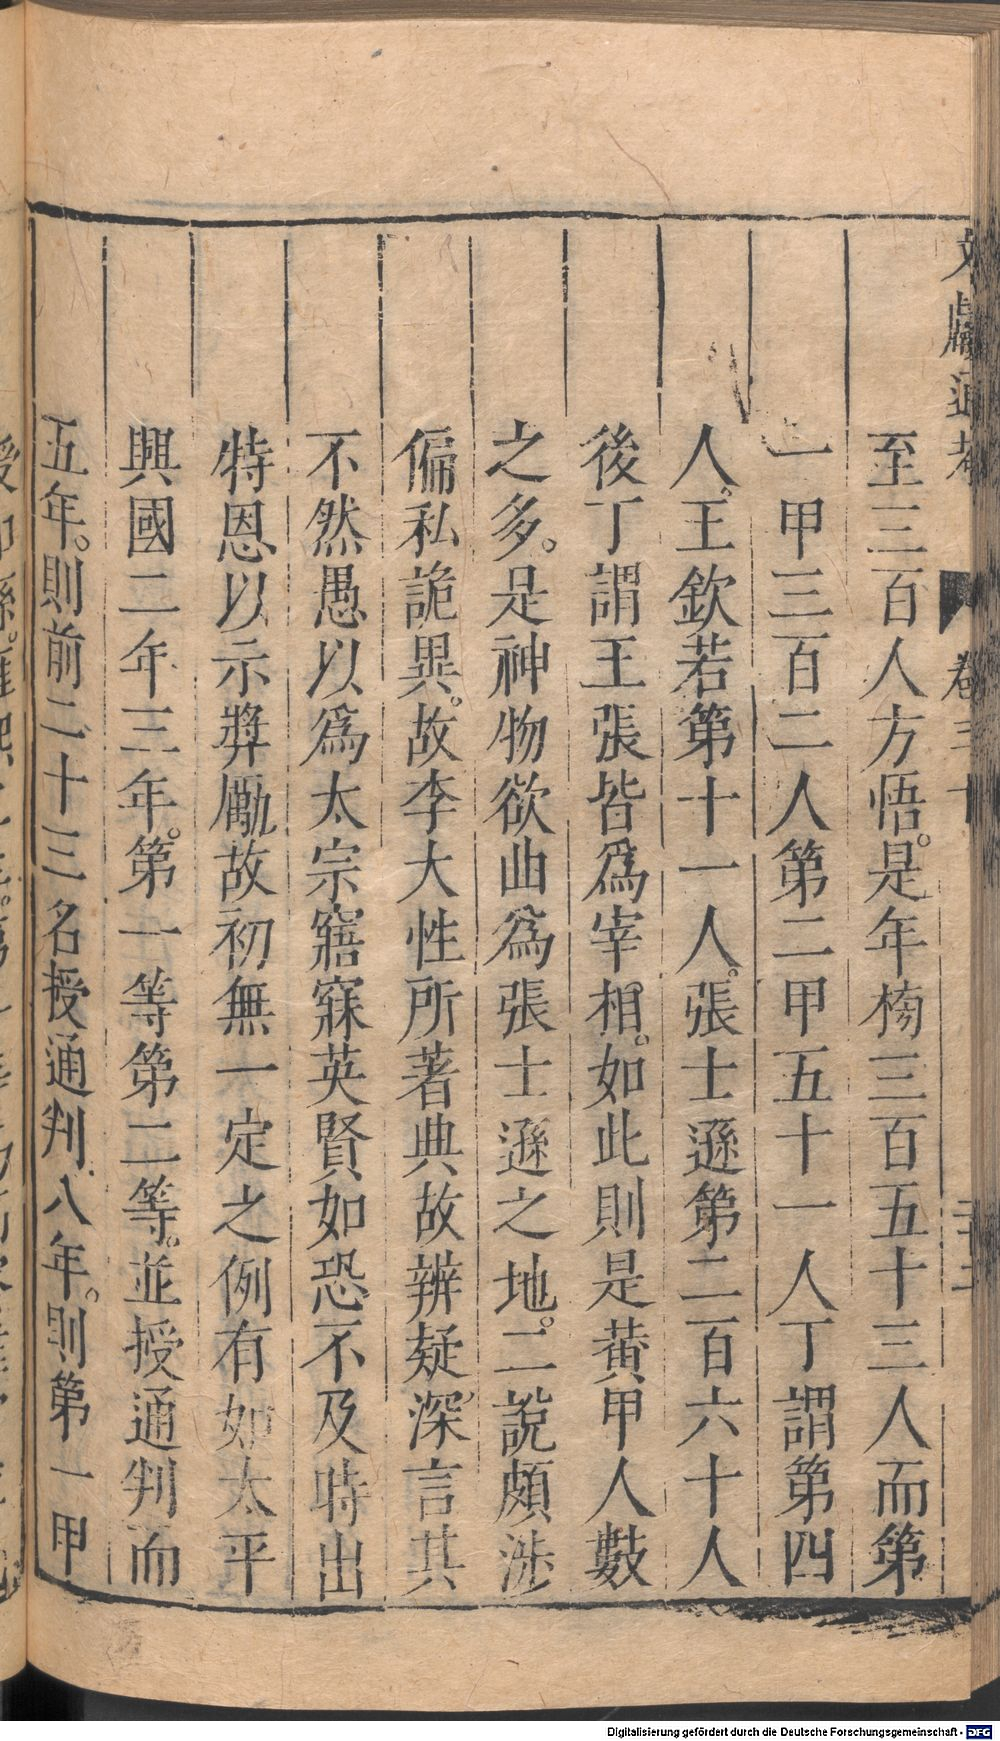 文獻通考 卷三十 二十三
至三百人方悟。是年榜三百五十三人而第
一甲三百二人第二甲五十一人丁謂第四
人。王欽若第十一人。張士遜第二百六十人
後丁謂王張皆爲宰相。如此則是黄甲人數
之多。是神物欲曲爲張士遜之地。二說頗涉
偏私詭異。故李大性所著典故辨疑深言其
不然愚以爲太宗寤寐英賢如恐不及時出
特恩以示奬勵故初無一定之例有如太平
興國二年三年。第一等第二等。並授通判而
五年。則前二十三名授通判八年。則第一甲
Digitalisierung gefördert durch die Deutsche Forschungsgemeinschaft - DFG